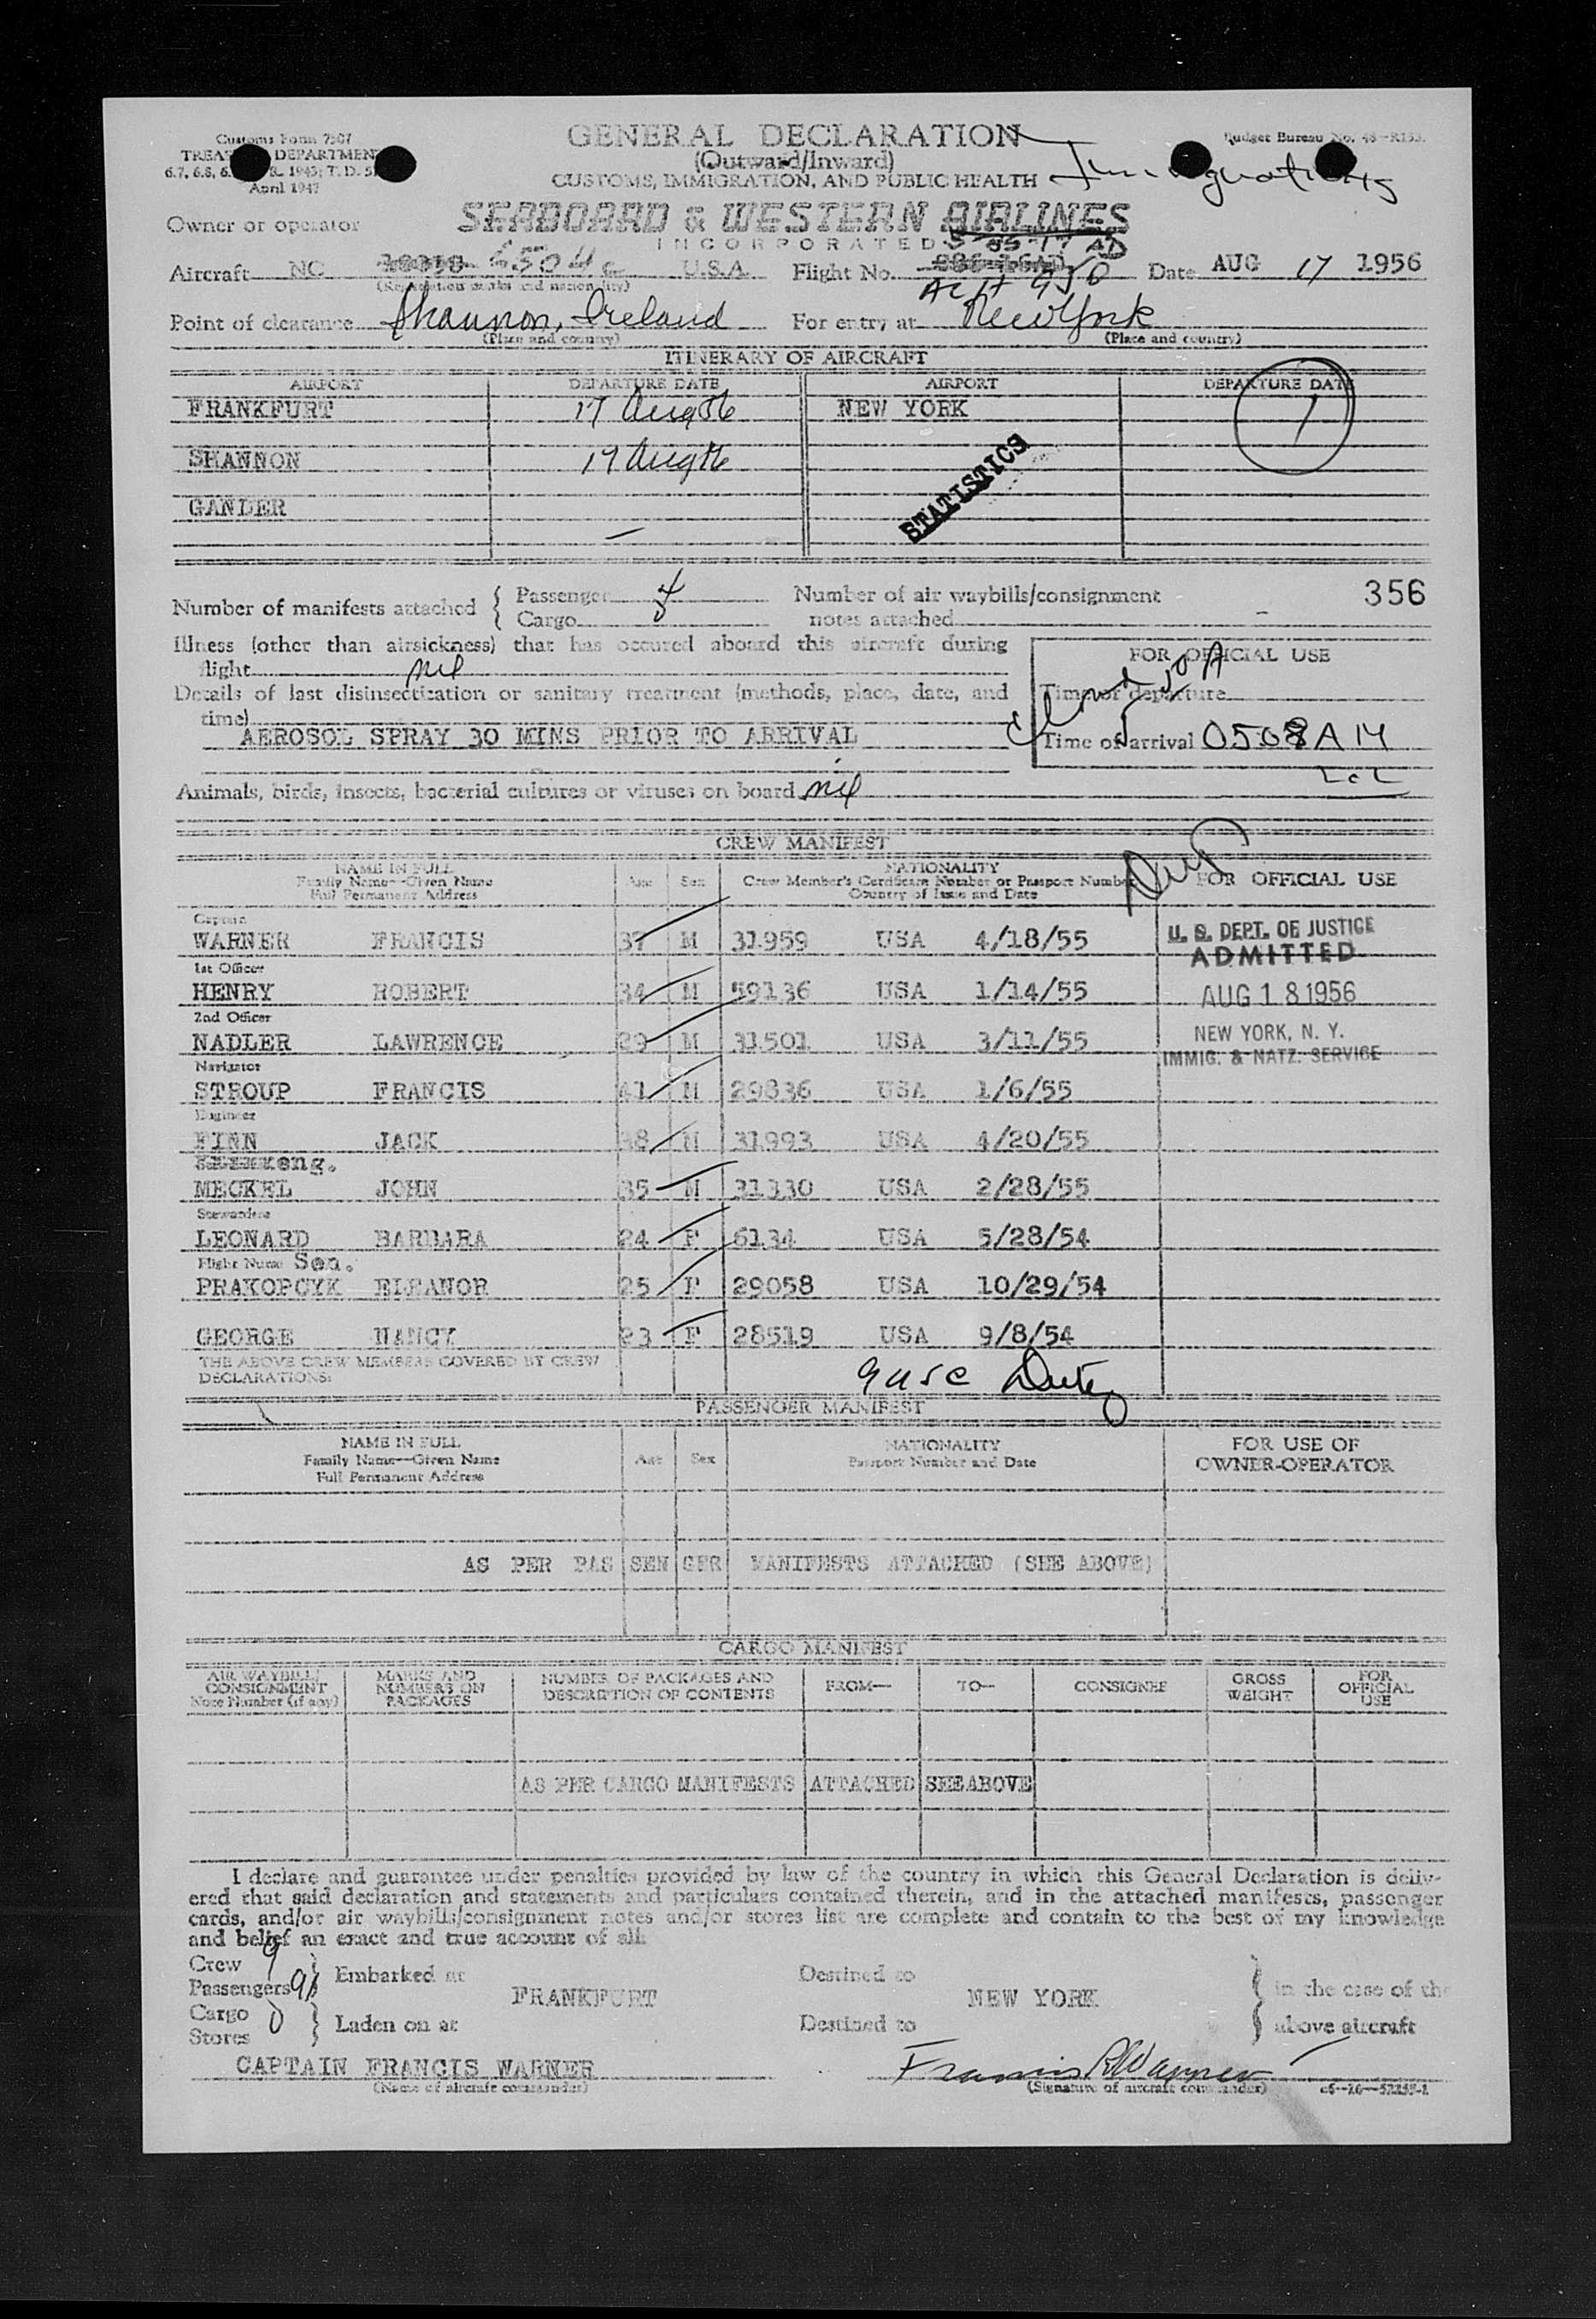 Customs Form 7507
TREA DEPARTMEN
April 1947
GENERAL DECLARATION
(Outward/Inward)
CUSTOMS, IMMIGRATION, AND PUBLIC HEALTH
Budget Bureau No. 48-R133.
Owner or operator SEABOARD & WESTERN AIRLINES
INCORPORATED
Aircraft NC 6504c U.S.A. Flight No. Date AUG 17 1956
(Registration marks and nationality)
Point of clearance Shannon, Ireland For entry at New York
(Place and country) (Place and country)
ITINERARY OF AIRCRAFT
AIRPORT DEPARTURE DATE AIRPORT DEPARTURE DATE
FRANKFURT 17 Aug 56 NEW YORK 1
SHANNON 17 Aug 56
GANDER —
STATISTICS
Number of manifests attached { Passenger 4 Number of air waybills/consignment 356
Cargo notes attached -
Illness (other than airsickness) that has occured aboard this aircraft during
flight nil
FOR OFFICIAL USE
Details of last disinsectization or sanitary treatment (methods, place, date, and
Time of departure
time)
AEROSOL SPRAY 30 MINS PRIOR TO ARRIVAL
Time of arrival 0508A
Animals, birds, insects, bacterial cultures or viruses on board nil
CREW MANIFEST
NAME IN FULL
Family Name--Given Name
Full Permanent Address
Age Sex
NATIONALITY
Crew Member's Certificate Number or Passport Number
Country of Issue and Date
FOR OFFICIAL USE
Captain
WARNER FRANCIS 37 M 31959 USA 4/18/55
1st Officer
HENRY ROBERT 34 M 59136 USA 1/14/55
2nd Officer
NADLER LAWRENCE 29 M 31501 USA 3/11/55
Navigator
STROUP FRANCIS 41 M 29836 USA 1/6/55
Engineer
FINN JACK 38 M 31993 USA 4/20/55
eng.
MECKEL JOHN 35 M 31330 USA 2/28/55
Stewardess
LEONARD BARBARA 24 F 6134 USA 5/28/54
Flight Nurse
PRAKOPCYK ELEANOR 25 F 29058 USA 10/29/54
GEORGE NANCY 23 F 28519 USA 9/8/54
U. S. DEPT. OF JUSTICE
ADMITTED
AUG 18 1956
NEW YORK, N. Y.
IMMIG. & NATZ. SERVICE
THE ABOVE CREW MEMBERS COVERED BY CREW
DECLARATIONS:
9 USC Duty
PASSENGER MANIFEST
NAME IN FULL
Family Name--Given Name
Full Permanent Address
Age Sex
NATIONALITY
Passport Number and Date
FOR USE OF
OWNER-OPERATOR
AS PER PAS SEN GER MANIFESTS ATTACHED (SEE ABOVE)
CARGO MANIFEST
AIR WAYBILL/
CONSIGNMENT
Note Number (if any)
MARKS AND
NUMBERS ON
PACKAGES
NUMBER OF PACKAGES AND
DESCRIPTION OF CONTENTS
FROM— TO— CONSIGNEE
GROSS
WEIGHT
FOR
OFFICIAL
USE
AS PER CARGO MANIFESTS ATTACHED SEE ABOVE
I declare and guarantee under penalties provided by law of the country in which this General Declaration is deliv-
ered that said declaration and statements and particulars contained therein, and in the attached manifests, passenger
cards, and/or air waybills/consignment notes and/or stores list are complete and contain to the best of my knowledge
and belief an exact and true account of all:
Crew 9
Passengers } Embarked at FRANKFURT Destined to NEW YORK } in the case of the
Cargo 0
Stores } Laden on at Destined to above aircraft
CAPTAIN FRANCIS WARNER Francis R Warner
(Name of aircraft commander) (Signature of aircraft commander)